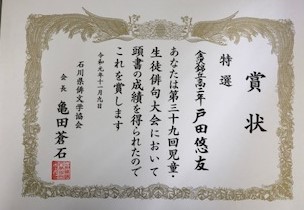 賞状
特選
金沢錦丘高二年 戸田悠友
あなたは第三十九回児童・
生徒俳句大会において
頭書の成績を得られたので
これを賞します
令和元年十一月九日
石川県俳文学協会
会長 亀田蒼石